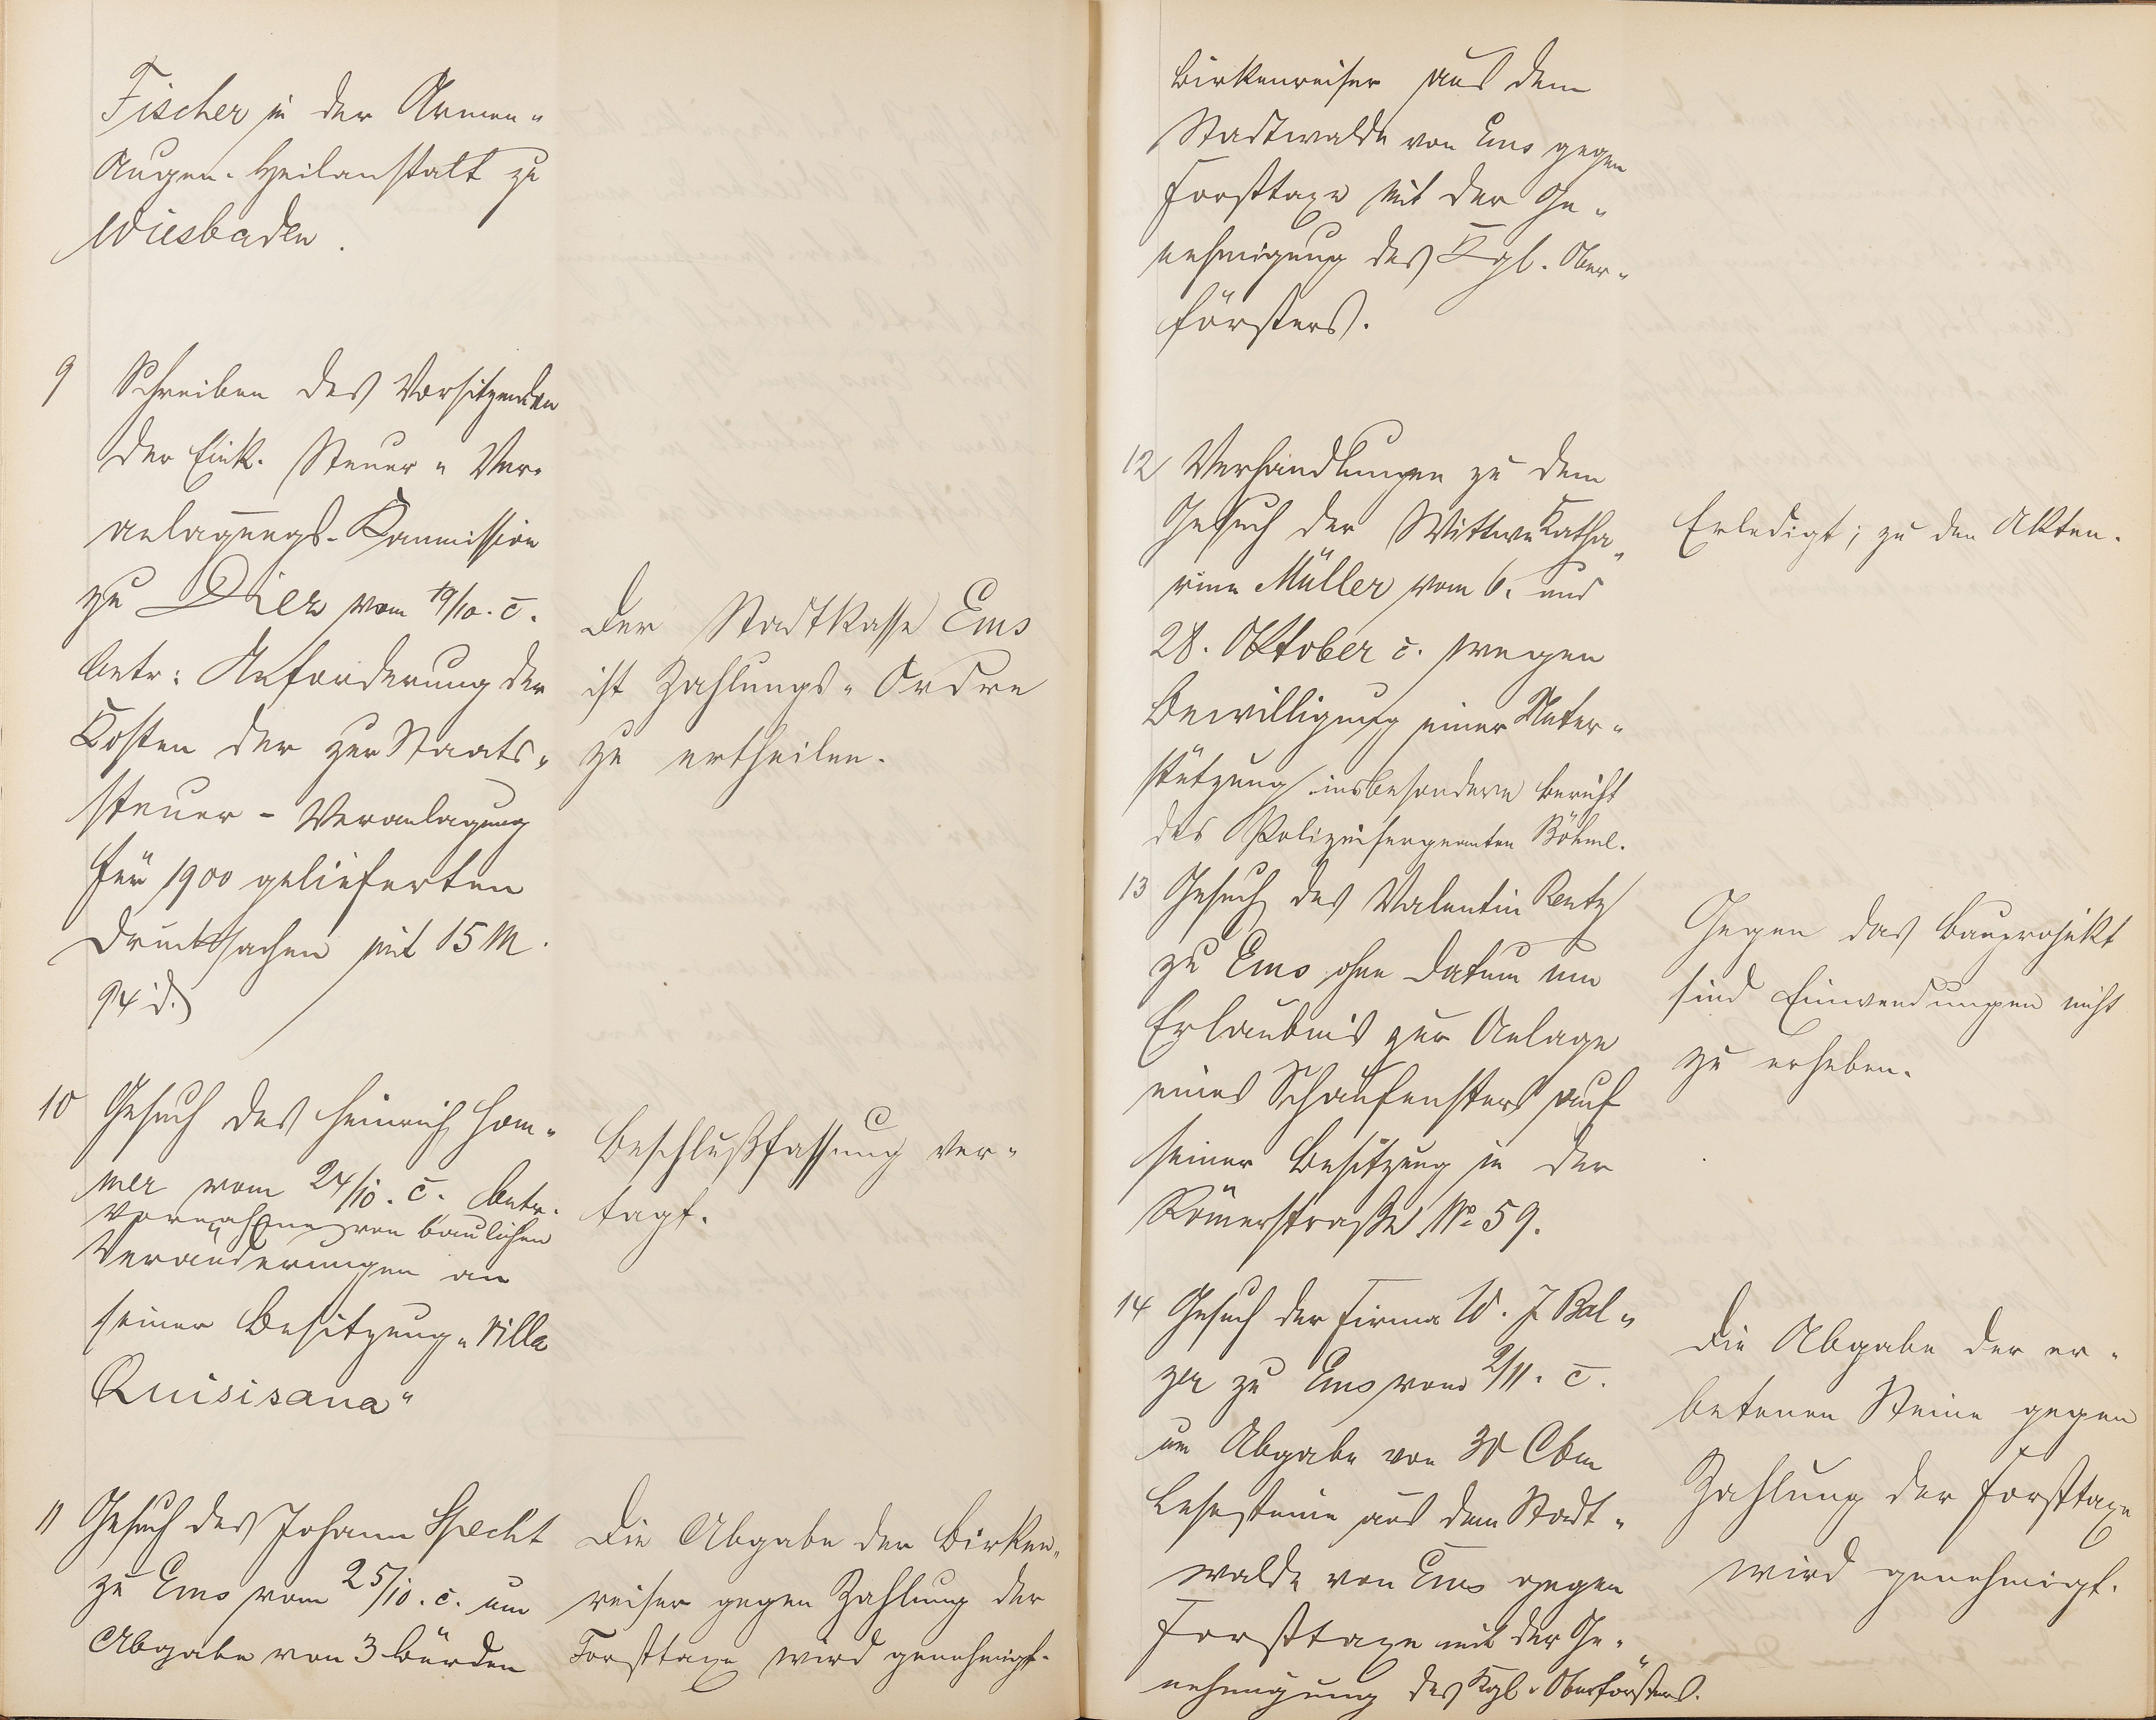 Fischer in der Armen-
Augen-Heilanstalt zu
Wiesbaden.
9 Schreiben des Vorsitzenden
der Eink. Steuer-Ver-
anlagungs-Kommission
zu Diez vom 19/10. c.
betr: Anforderung der
Kosten der zur Staats-
steuer-Veranlagung
für 1900 gelieferten
Drucksachen mit 15 M.
94 d.
Der Stadtkasse Ems
ist Zahlungs-Ordre
zu ertheilen.
10 Gesuch des Heinrich Hom-
mer vom 24/10. c. betr.
Vornahme von baulichen
Veränderungen an
seiner Besitzung „Villa
Quisisana"
Beschlußfassung ver-
tagt.
11 Gesuch des Johann Specht
zu Ems vom 25/10. c. um
Abgabe von 3 Bürden
Die Abgabe der Birken-
reiser gegen Zahlung der
Forsttaxe wird genehmigt.
Birkenreiser aus dem
Stadtwalde von Ems gegen
Forsttaxe mit der Ge-
nehmigung des Kgl. Ober-
försters.
12 Verhandlungen zu dem
Gesuch der Wittwe Katha-
rina Müller vom 6. und
28. Oktober c. wegen
Bewilligung einer Unter-
stützung insbesondere Bericht
des Polizeisergeanten
Erledigt; zu den Akten.
13 Gesuch des Valentin Rentz
zu Ems ohne Datum um
Erlaubnis zur Anlage
eines Schaufensters auf
seiner Besitzung in der
Römerstraße No 59.
Gegen das Bauprojekt
sind Einwendungen nicht
zu erheben.
14 Gesuch der Firma W. J. Bal-
zer zu Ems vom 2/11. c.
um Abgabe von 30 Cbm
Lesesteine aus dem Stadt-
walde von Ems gegen
Forsttaxe mit der Ge-
nehmigung des Kgl. Oberförsters.
Die Abgabe der er-
betenen Steine gegen
Zahlung der Forsttaxe
wird genehmigt.